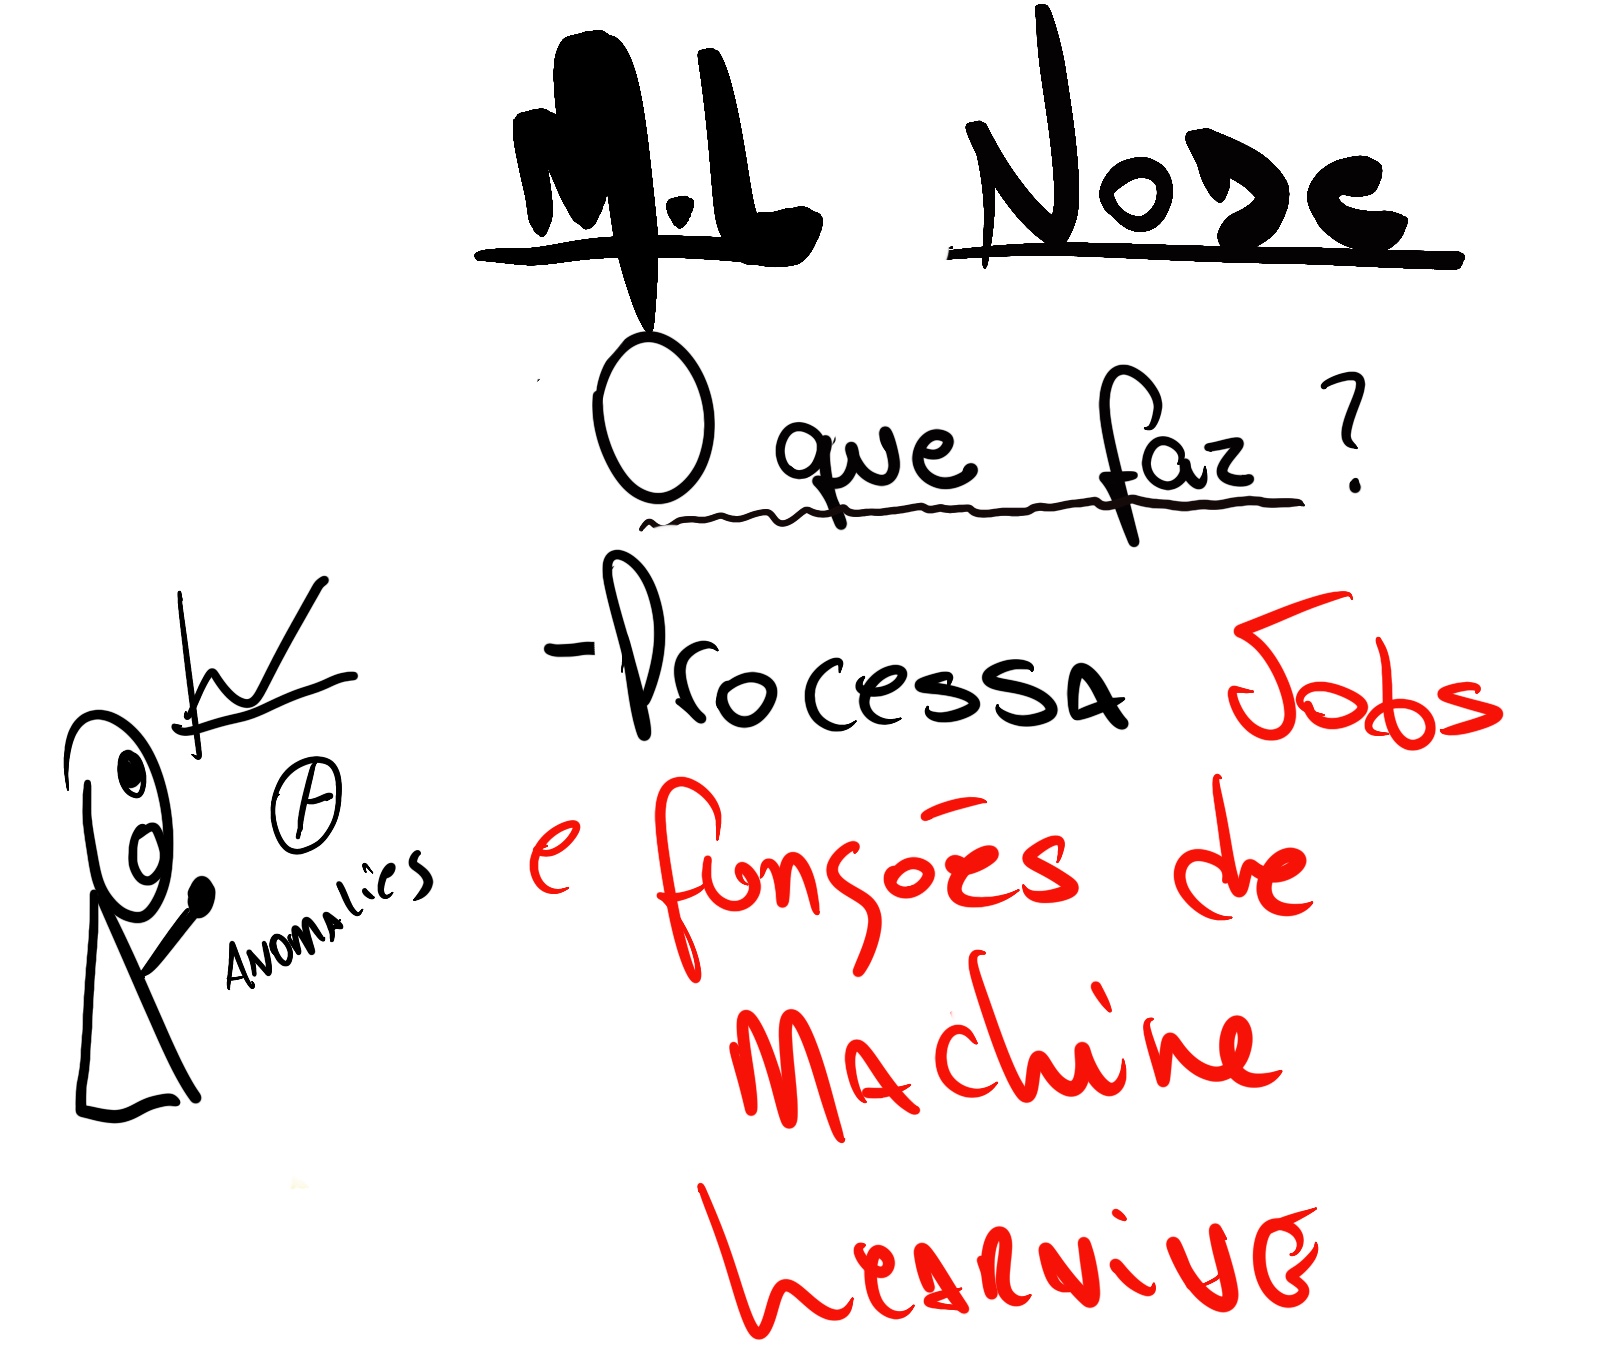 M.L NODE
O que faz ?
- Processa Jobs
e funções de
Machine
Learning
A
Anomalies